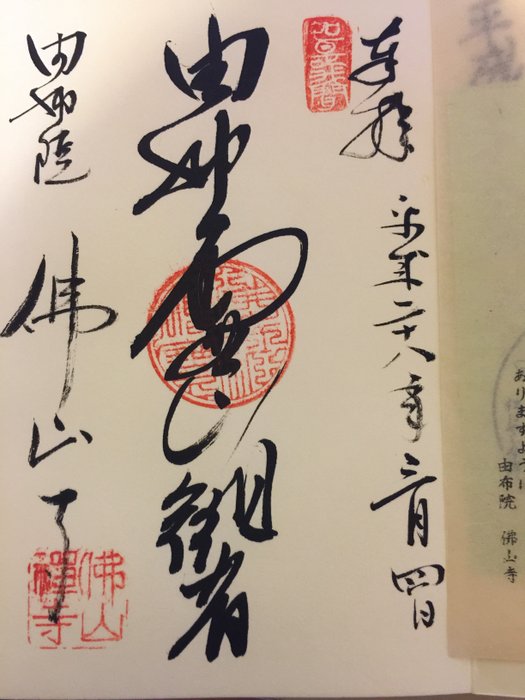 奉拝
平成二十八年三月四日
由布観音
由布院
佛山寺
佛山禪寺
おりますように
由布院 佛山寺